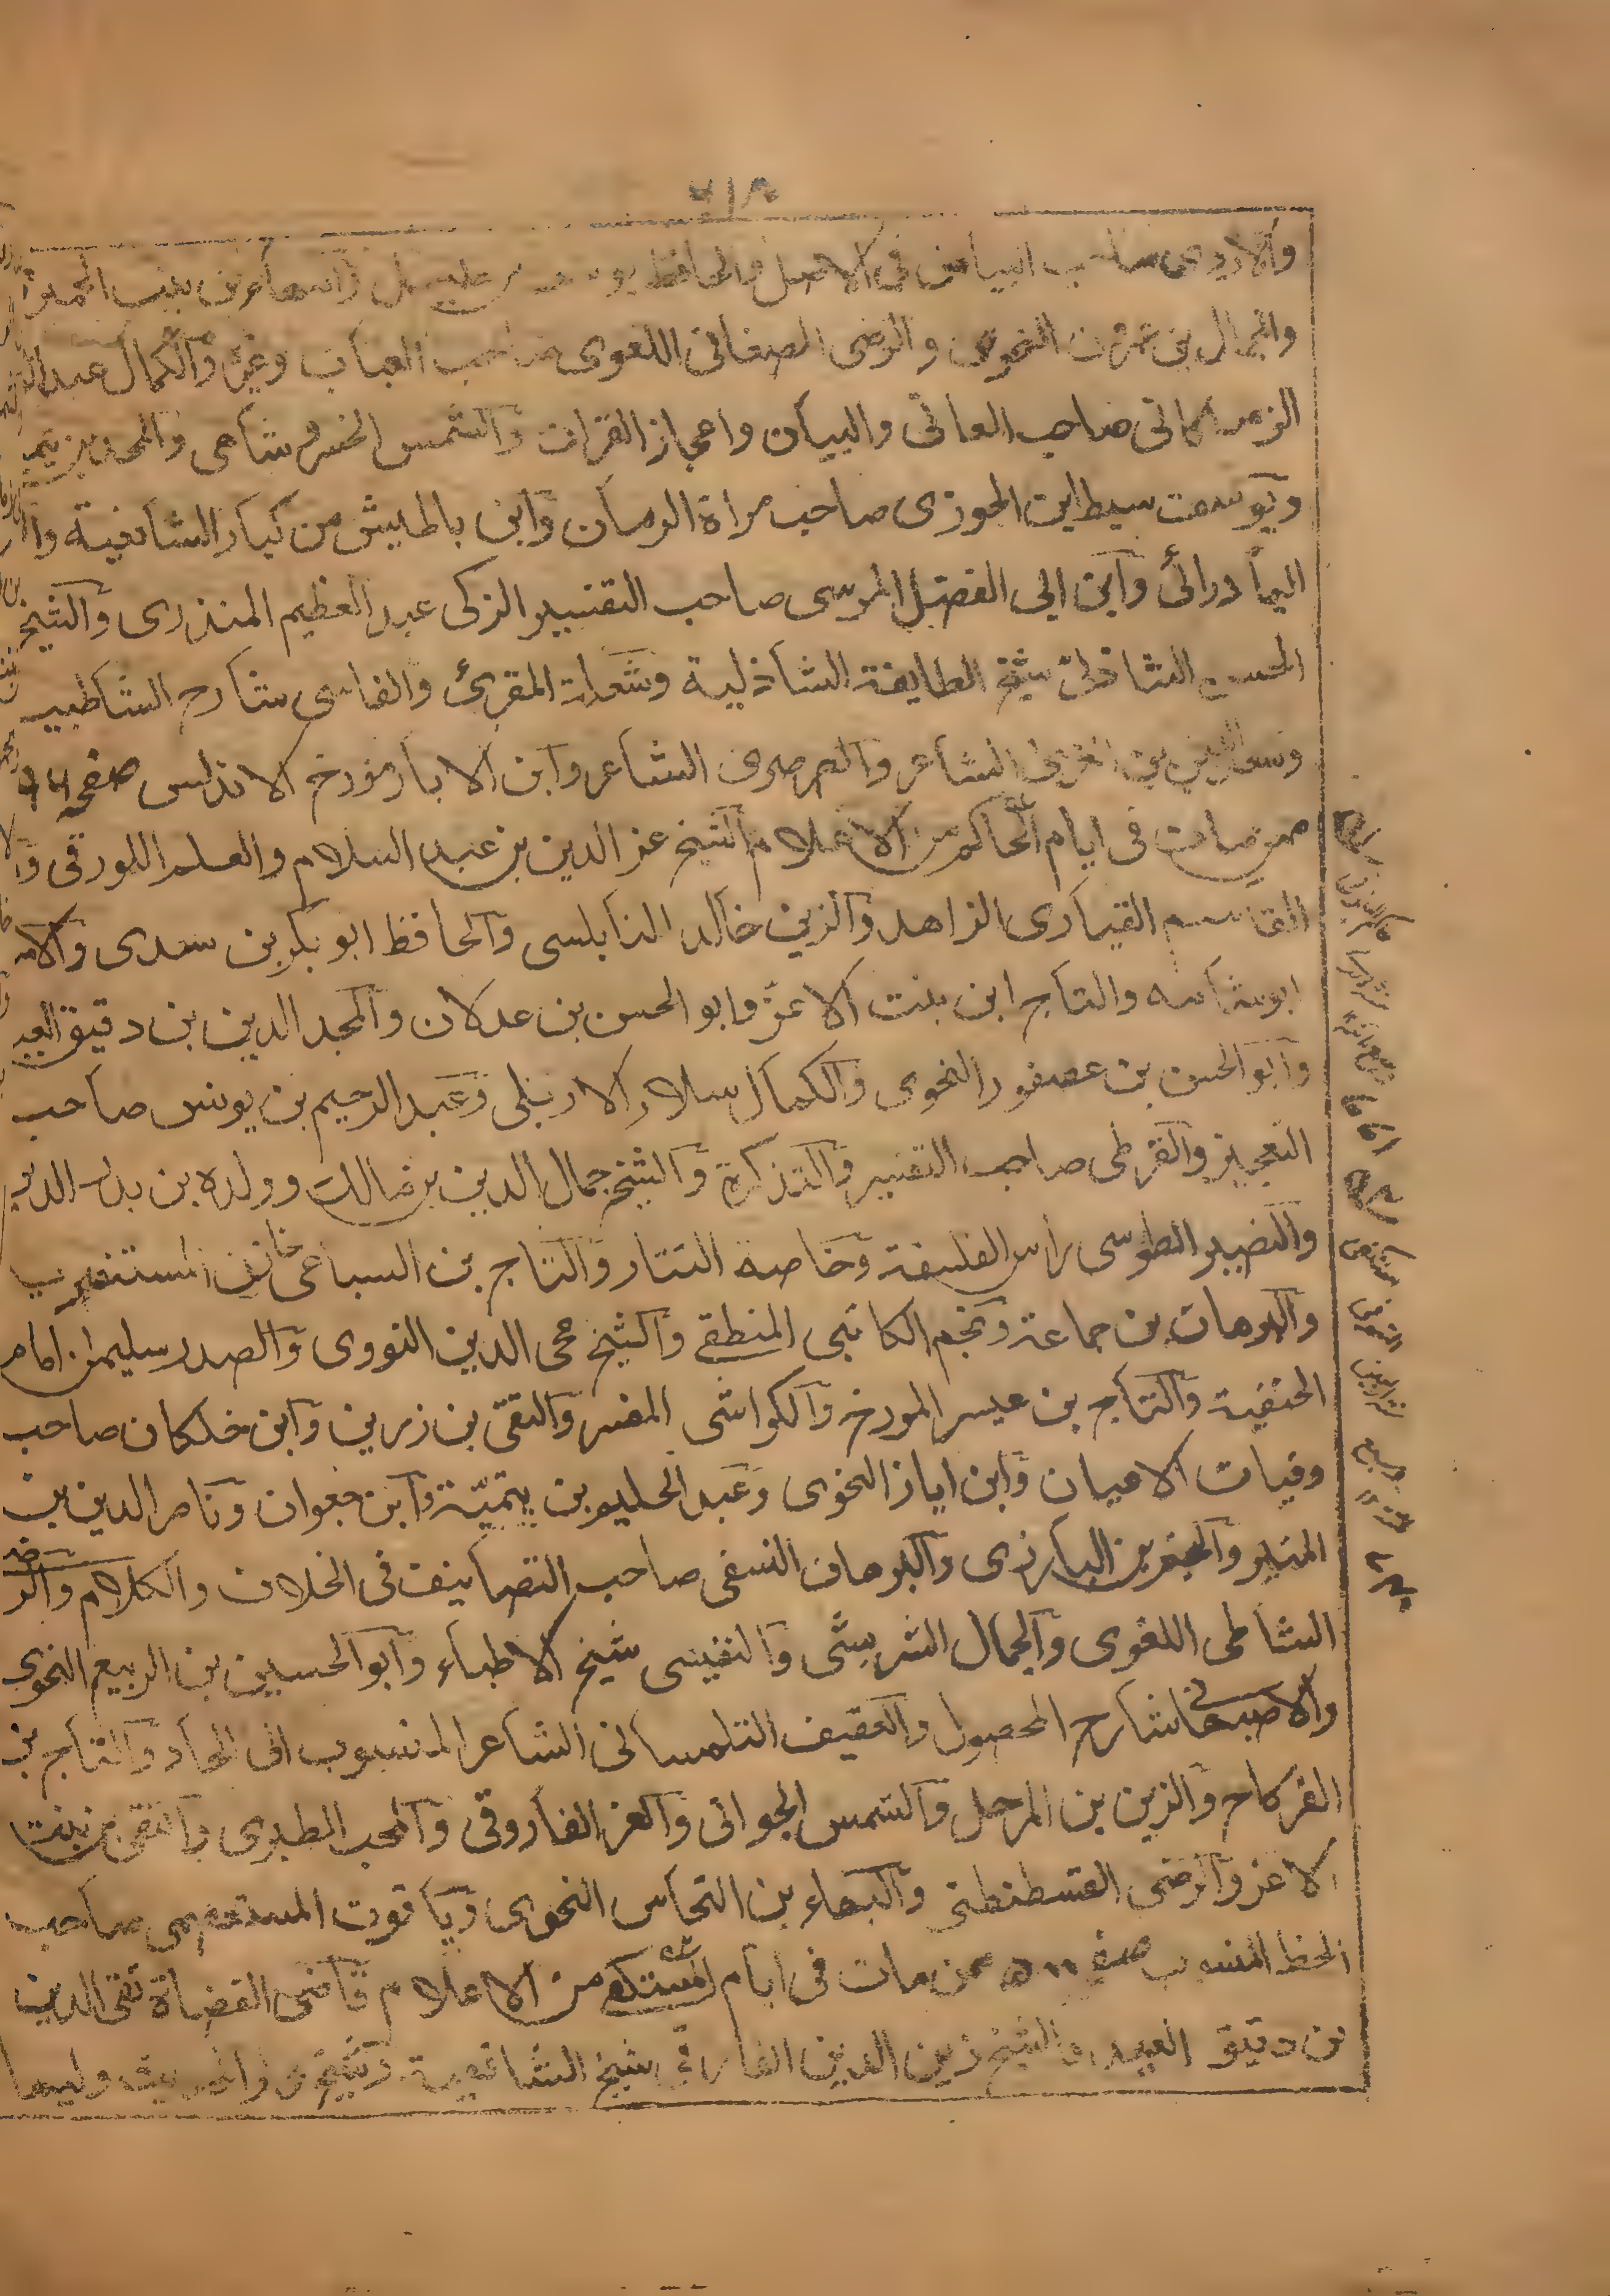 ٢١٨
والاردوى صاحب في الاصل والحافظ يوسف بن خليل والبهاء بن بنت الحميرى
والجمال بن عمرون النحوى والرضى الصغانى اللغوى صاحب العباب وغيره والكمال عبد
الزملكانى صاحب المعانى والبيان واعجاز القران والشمس الخسروشاهى والمجد بن تيمية
ويوسف سبط ابن الجوزى صاحب مراة الزمان وابن باطيش من كبار الشافعية وا
البادرائى وابن ابى الفضل المرسى صاحب التفسير الزكى عبد العظيم المنذرى والشيخ
الحسن الشاذلى شيخ الطايفة الشاذلية وشعلة المقرئ والفاسى شارح الشاطبية
وسعد الدين بن العربى الشاعر والصرصرى الشاعر وابن الابار مؤرخ الاندلس صفحه
ممن مات فى ايام الحاكم من الاعلام الشيخ عز الدين بن عبد السلام والعلم اللورقى وا
القاسم القبارى الزاهد والزين خالد النابلسى والحافظ ابو بكر بن سدى والا
ابو شامه والتاج ابن بنت الاعز وابو الحسن بن عدلان والمجد الدين بن دقيق العيد
وابو الحسن بن عصفور النحوى والكمال سلار الاربلى وعبد الرحيم بن يونس صاحب
التعجيز والقرطبى صاحب التفسير والتذكرة والشيخ جمال الدين بن مالك وولده بن بدر الدين
والنصير الطوسى راس الفلسفة وخاصة التتار والتاج بن السباعى خازن المستنصرية
والبرهان بن جماعة ونجم الكاتبى المنطقى والشيخ محى الدين النووى والصدر سليمان امام
الحنفية والتاج بن ميسر المورخ والكواشى المفسر والتقى بن رزين وابن خلكان صاحب
وفيات الاعيان وابن اياز النحوى وعبد الحليم بن تيمية وابن جعوان وناصر الدين بن
المنير والنجم بن البارزى والبرهان النسفى صاحب التصانيف فى الخلاف والكلام والرضى
الشاطبى اللغوى والجمال الشريشى والنفيسى شيخ الاطباء وابو الحسين بن الربيع النحوى
والاصبهانى شارح المحصول والعفيف التلمسانى الشاعر المنسوب الى الحاد والتاج بن
الفركاح والزين بن المرحل والشمس الجوانى والعز الفاروقى والمحب الطبرى والتقى بن بنت
الاعز والرضى القسطنطنى والبهاء بن النحاس النحوى وياقوت المستعصمى صاحب
الخط المنسوب صفحه ممن مات فى ايام المستكفى من الاعلام قاضى القضاة تقى الدين
بن دقيق العيد والشيخ زين الدين الفارقى شيخ الشافعية وشيخ دار الحديث وليها